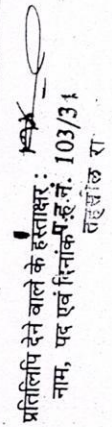 प्रतिलिपि देने वाले के हस्ताक्षर :
नाम, पद एवं दिनांक प.ह.नं. 103/31
तहसील रा